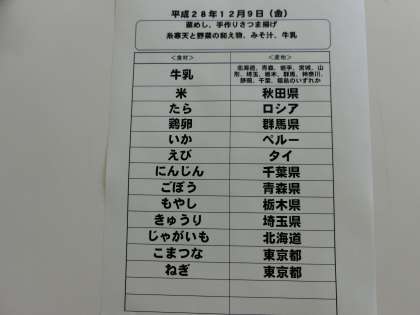 平成28年12月9日(金)
菜めし、手作りさつま揚げ
糸寒天と野菜の和え物、みそ汁、牛乳
<食材> <産地>
牛乳 北海道、青森、岩手、宮城、山
形、埼玉、栃木、群馬、神奈川、
静岡、千葉、福島のいずれか
米 秋田県
たら ロシア
鶏卵 群馬県
いか ペルー
えび タイ
にんじん 千葉県
ごぼう 青森県
もやし 栃木県
きゅうり 埼玉県
じゃがいも 北海道
こまつな 東京都
ねぎ 東京都